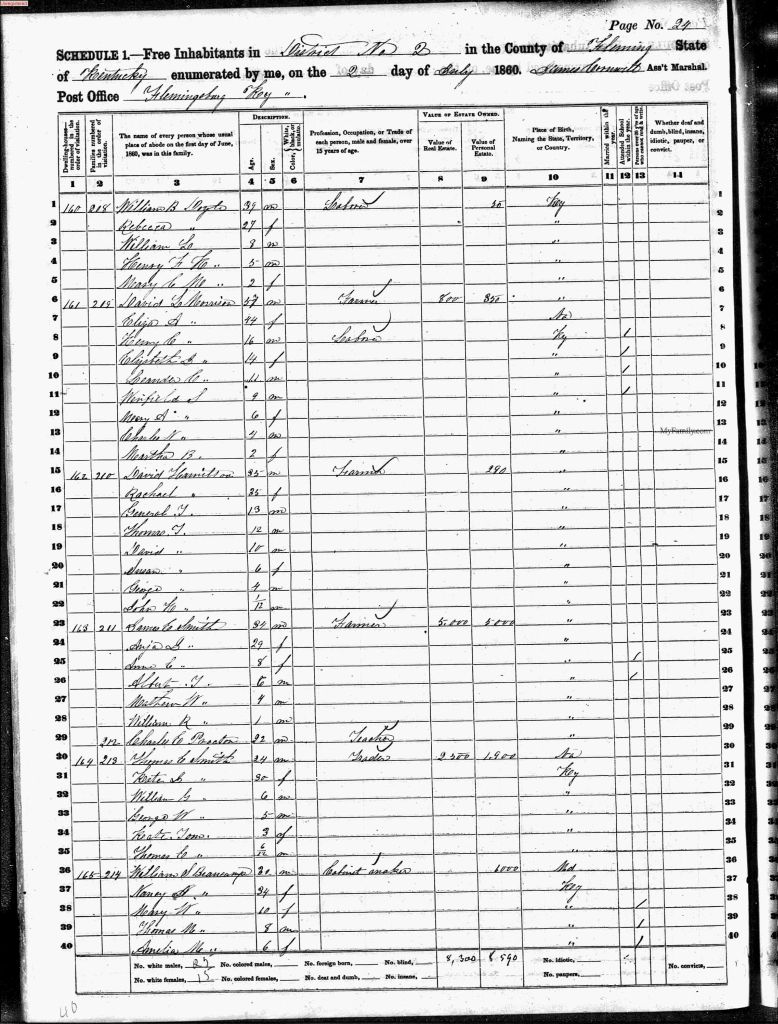 Page No. 24
SCHEDULE 1.—Free Inhabitants in District No 2 in the County of Fleming State
of Kentucky enumerated by me, on the 2 day of July 1860. Ass't Marshal.
Post Office Flemingsburg Key "
Dwelling-houses—numbered in the order of visitation.
Families numbered in the order of visitation.
The name of every person whose usual place of abode on the first day of June, 1860, was in this family.
DESCRIPTION.
Age.
Sex.
Color, White, black, or mulatto.
Profession, Occupation, or Trade of each person, male and female, over 15 years of age.
VALUE OF ESTATE OWNED.
Value of Real Estate.
Value of Personal Estate.
Place of Birth, Naming the State, Territory, or Country.
Married within the year.
Attended School within the year.
Whether deaf and dumb, blind, insane, idiotic, pauper, or convict.
1 2 3 4 5 6 7 8 9 10 11 12 13 14
1 160 208 William B 39 m Labor 50 Key 1
2 Rebecca " 27 f " 2
3 William L 8 m " 3
4 Henry F. " 5 m " 4
5 Mary C " 2 f " 5
6 161 209 David L Morrison 57 m Farmer 800 350 " 6
7 Eliza A " 44 f Va 7
8 Henry C " 16 m Labor Ky 1 8
9 Elizabeth " 14 f " 1 9
10 Leander C " 11 m " 1 10
11 Winfield S 9 m " 1 11
12 Mary A " 6 f " 12
13 Charles " 4 m " 13
14 Martha B. 2 f " 14
15 162 210 David Hamilton 35 m Farmer 290 " 15
16 Rachael " 35 f " 16
17 General T. 13 m " 17
18 Thomas T. 12 m " 18
19 David " 10 m " 19
20 Susan " 6 f " 20
21 George " 4 m " 21
22 John " 1/12 m " 22
23 163 211 James C Smith 34 m Farmer 5.000 5.000 " 23
24 " 29 f " 24
25 Anne C " 8 f " 1 25
26 Albert T. " 6 m " 1 26
27 Mathew W " 4 m " 27
28 William R " 1 m " 28
29 212 Charles C Proctor 22 m Teacher " 29
30 164 213 Thomas C Smith 34 m Trader 2500 1.900 Va 30
31 " 30 f Key 31
32 William " 6 m " 32
33 George W " 5 m " 33
34 3 f " 34
35 Thomas C " 6/12 m " 35
36 165 214 William S Beaucamp 30 m Cabinet maker 1000 Md 36
37 Nancy " 34 f Key 37
38 Mary W " 10 f " 1 38
39 Thomas M " 8 m " 1 39
40 Amelia M " 6 f " 1 40
No. white males, No. colored males, No. foreign born, No. blind, 8,300 8590 No. idiotic, No. convicts,
No. white females, No. colored females, No. deaf and dumb, No. insane, No. paupers,
MyFamily.com
40